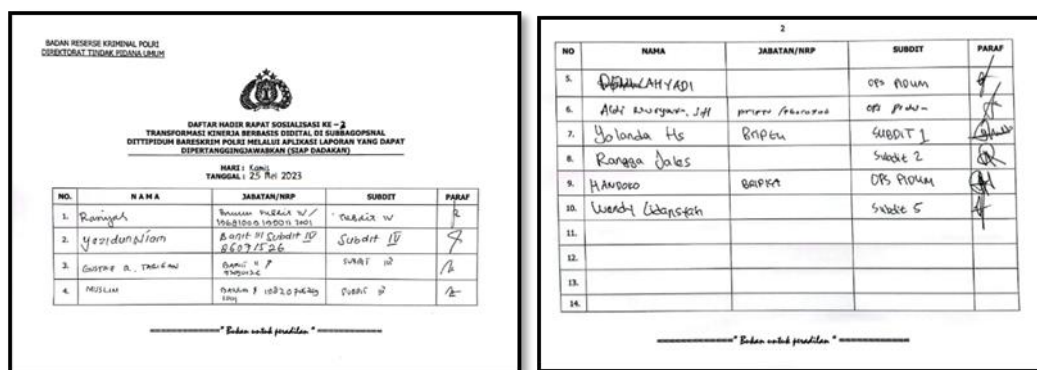 BADAN RESERSE KRIMINAL POLRI
DIREKTORAT TINDAK PIDANA UMUM
DAFTAR HADIR RAPAT SOSIALISASI KE – 2
TRANSFORMASI KINERJA BERBASIS DIDITAL DI SUBBAGOPSNAL
DITTIPIDUM BARESKRIM POLRI MELALUI APLIKASI LAPORAN YANG DAPAT
DIPERTANGGINGJAWABKAN (SIAP DADAKAN)
HARI : Kamis
TANGGAL : 25 Mei 2023
NO. NAMA JABATAN/NRP SUBDIT PARAF
1. Raniyah
2. Yazidun Niam Banit III Subdit IV Subdit IV
86091526
3. GUSTAF R. TARIGAN SUBDIT
4. MUSLIM SUBDIT
" Bukan untuk peradilan "
2
NO NAMA JABATAN/NRP SUBDIT PARAF
5. LAHYADI OPS PIDUM
6. Aldi OPS Pidum
7. Yolanda Hs BRIPTU SUBDIT 1
8. Rangga Jales Subdit 2
9. HANDOKO BRIPKA OPS PIDUM
10. Wendy Subdit 5
11.
12.
13.
14.
" Bukan untuk peradilan "